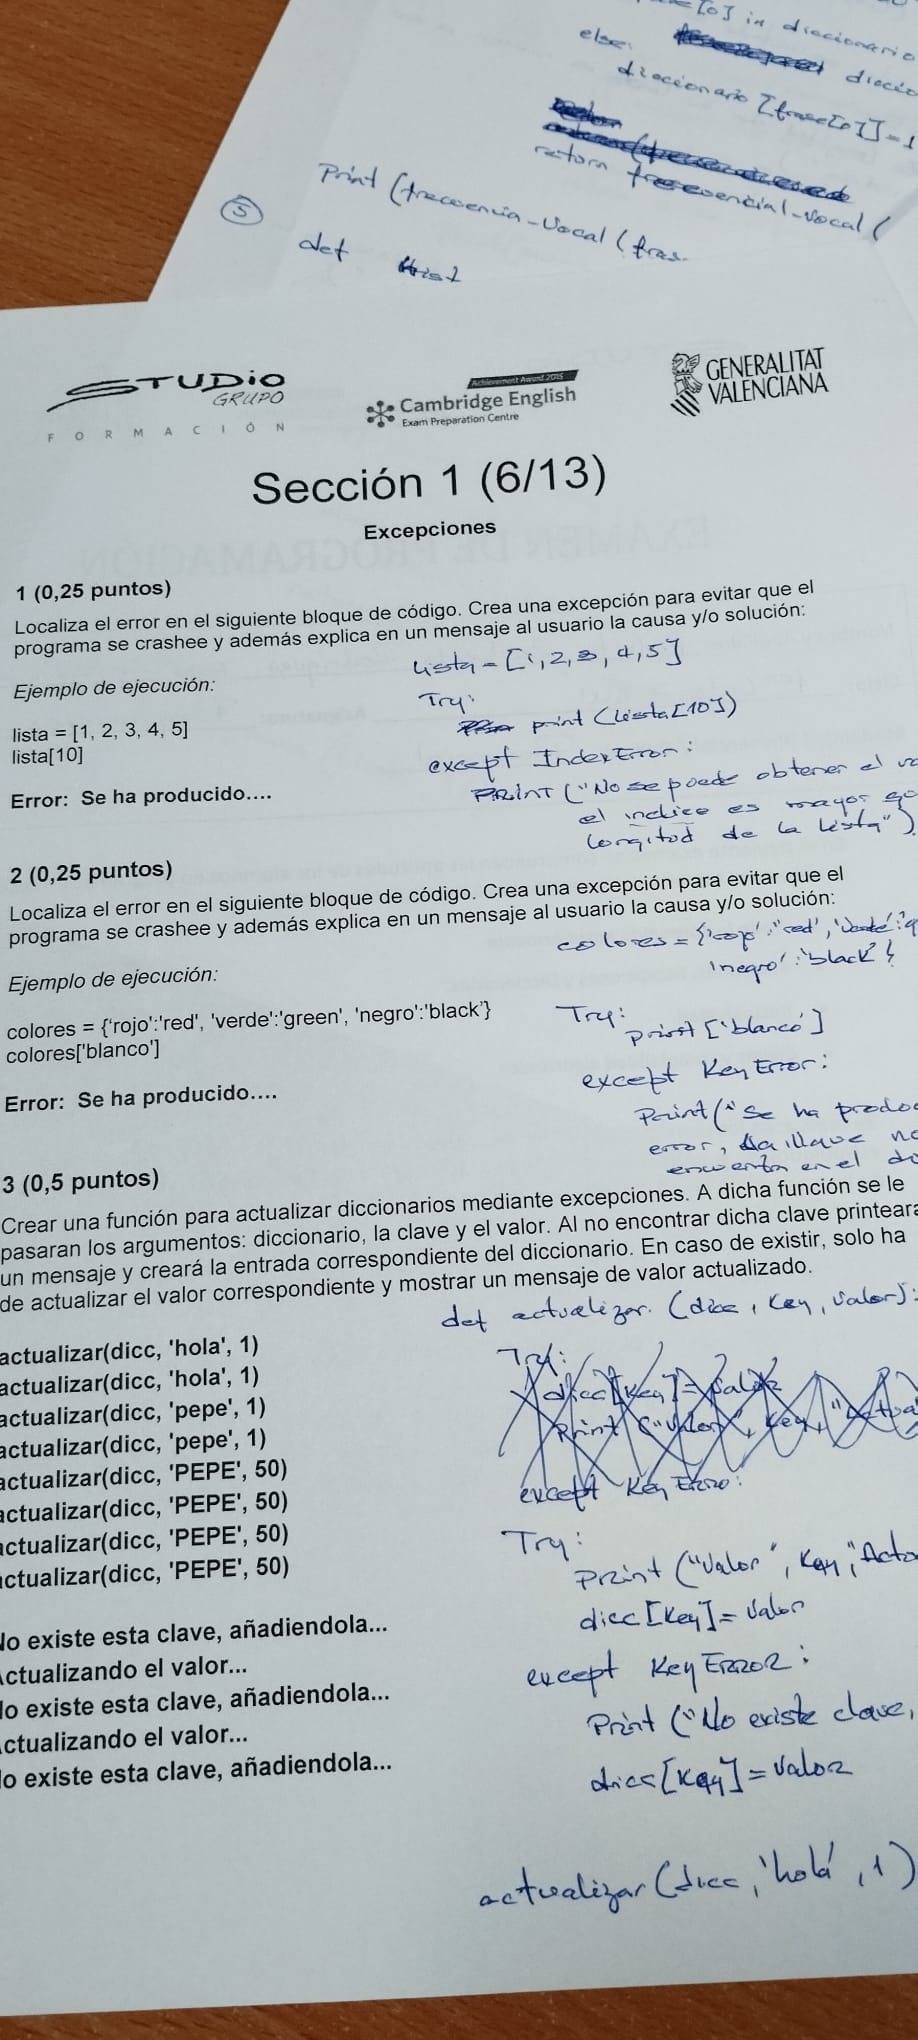 [0] in diccionario
else:
diccionario [frase[0]] = 1
return frecuencial-vocal (
Print (frecuencia-Vocal (fras
5
def
STUDiO
GRUPO
FORMACIÓN
Achievement Award 2015
Cambridge English
Exam Preparation Centre
GENERALITAT
VALENCIANA
Sección 1 (6/13)
Excepciones
1 (0,25 puntos)
Localiza el error en el siguiente bloque de código. Crea una excepción para evitar que el
programa se crashee y además explica en un mensaje al usuario la causa y/o solución:
Lista = [1, 2, 3, 4, 5]
Ejemplo de ejecución:
Try:
print (Lista[10])
lista = [1, 2, 3, 4, 5]
lista[10]
except IndexError:
Error: Se ha producido....
PRINT ("No se puede obtener el
el indice es mayor
longitud de la lista")
2 (0,25 puntos)
Localiza el error en el siguiente bloque de código. Crea una excepción para evitar que el
programa se crashee y además explica en un mensaje al usuario la causa y/o solución:
colores = { : 'red',
'negro': 'black'}
Ejemplo de ejecución:
colores = {'rojo':'red', 'verde':'green', 'negro':'black'}
colores['blanco']
Try:
print ['blanco']
except KeyError:
Error: Se ha producido....
Print ("Se ha
error, la llave
en el
3 (0,5 puntos)
Crear una función para actualizar diccionarios mediante excepciones. A dicha función se le
pasaran los argumentos: diccionario, la clave y el valor. Al no encontrar dicha clave printeara
un mensaje y creará la entrada correspondiente del diccionario. En caso de existir, solo ha
de actualizar el valor correspondiente y mostrar un mensaje de valor actualizado.
def actualizar (dicc, key, valor):
actualizar(dicc, 'hola', 1)
actualizar(dicc, 'hola', 1)
actualizar(dicc, 'pepe', 1)
actualizar(dicc, 'pepe', 1)
actualizar(dicc, 'PEPE', 50)
actualizar(dicc, 'PEPE', 50)
actualizar(dicc, 'PEPE', 50)
actualizar(dicc, 'PEPE', 50)
Try:
dicc[key] = valor
Print ("Valor", key, "
except Key Error:
Try:
Print ("Valor", key, "
dicc[key] = valor
except KeyERROR:
Print ("No existe clave,
dicc[key] = valor
No existe esta clave, añadiendola...
Actualizando el valor...
No existe esta clave, añadiendola...
Actualizando el valor...
No existe esta clave, añadiendola...
actualizar (dicc, 'hola', 1)